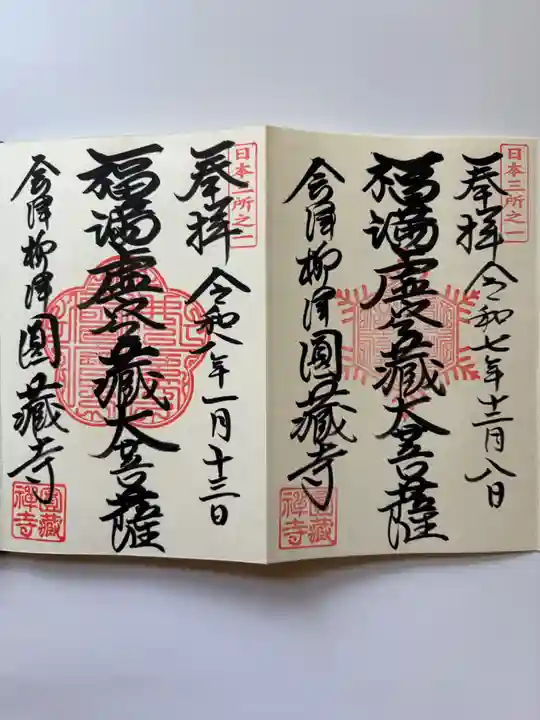 日本三所之一
奉拝 令和七年十二月八日
福満虚空藏大菩薩
会津柳津圓藏寺
圓藏禅寺
日本三所之一
奉拝 令和八年一月十三日
福満虚空藏大菩薩
会津柳津圓藏寺
圓藏禅寺